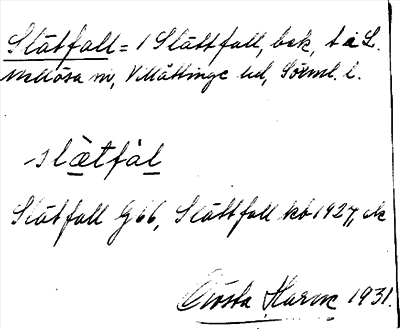 Slätfall = 1 Slättfall, bsk, t a L.
Mellösa sn, Villåttinge hd, Sörml. l.
slätfàl
Slätfall G 66, Slättfall kb 1927, ek
Gösta Harve 1931.